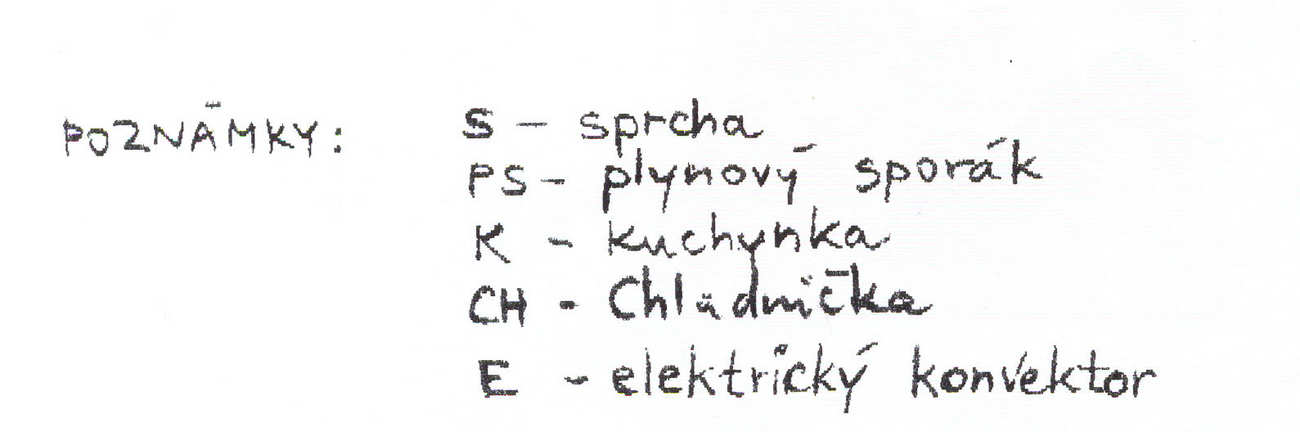 POZNÁMKY: S - sprcha
PS - plynový sporák
K - kuchynka
CH - Chladnička
E - elektrický konvektor